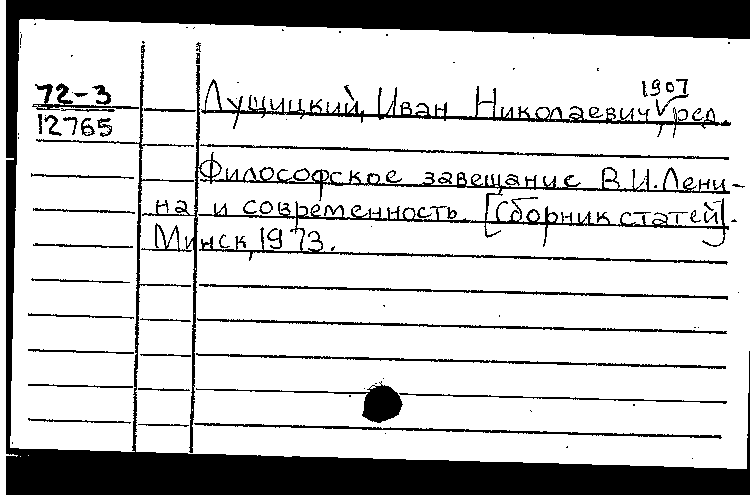 72-3
12765
1907
Лущицкий, Иван Николаевич, ред.
Философское завещание В.И.Лени-
на и современность. [Сборник статей].
Минск, 1973.